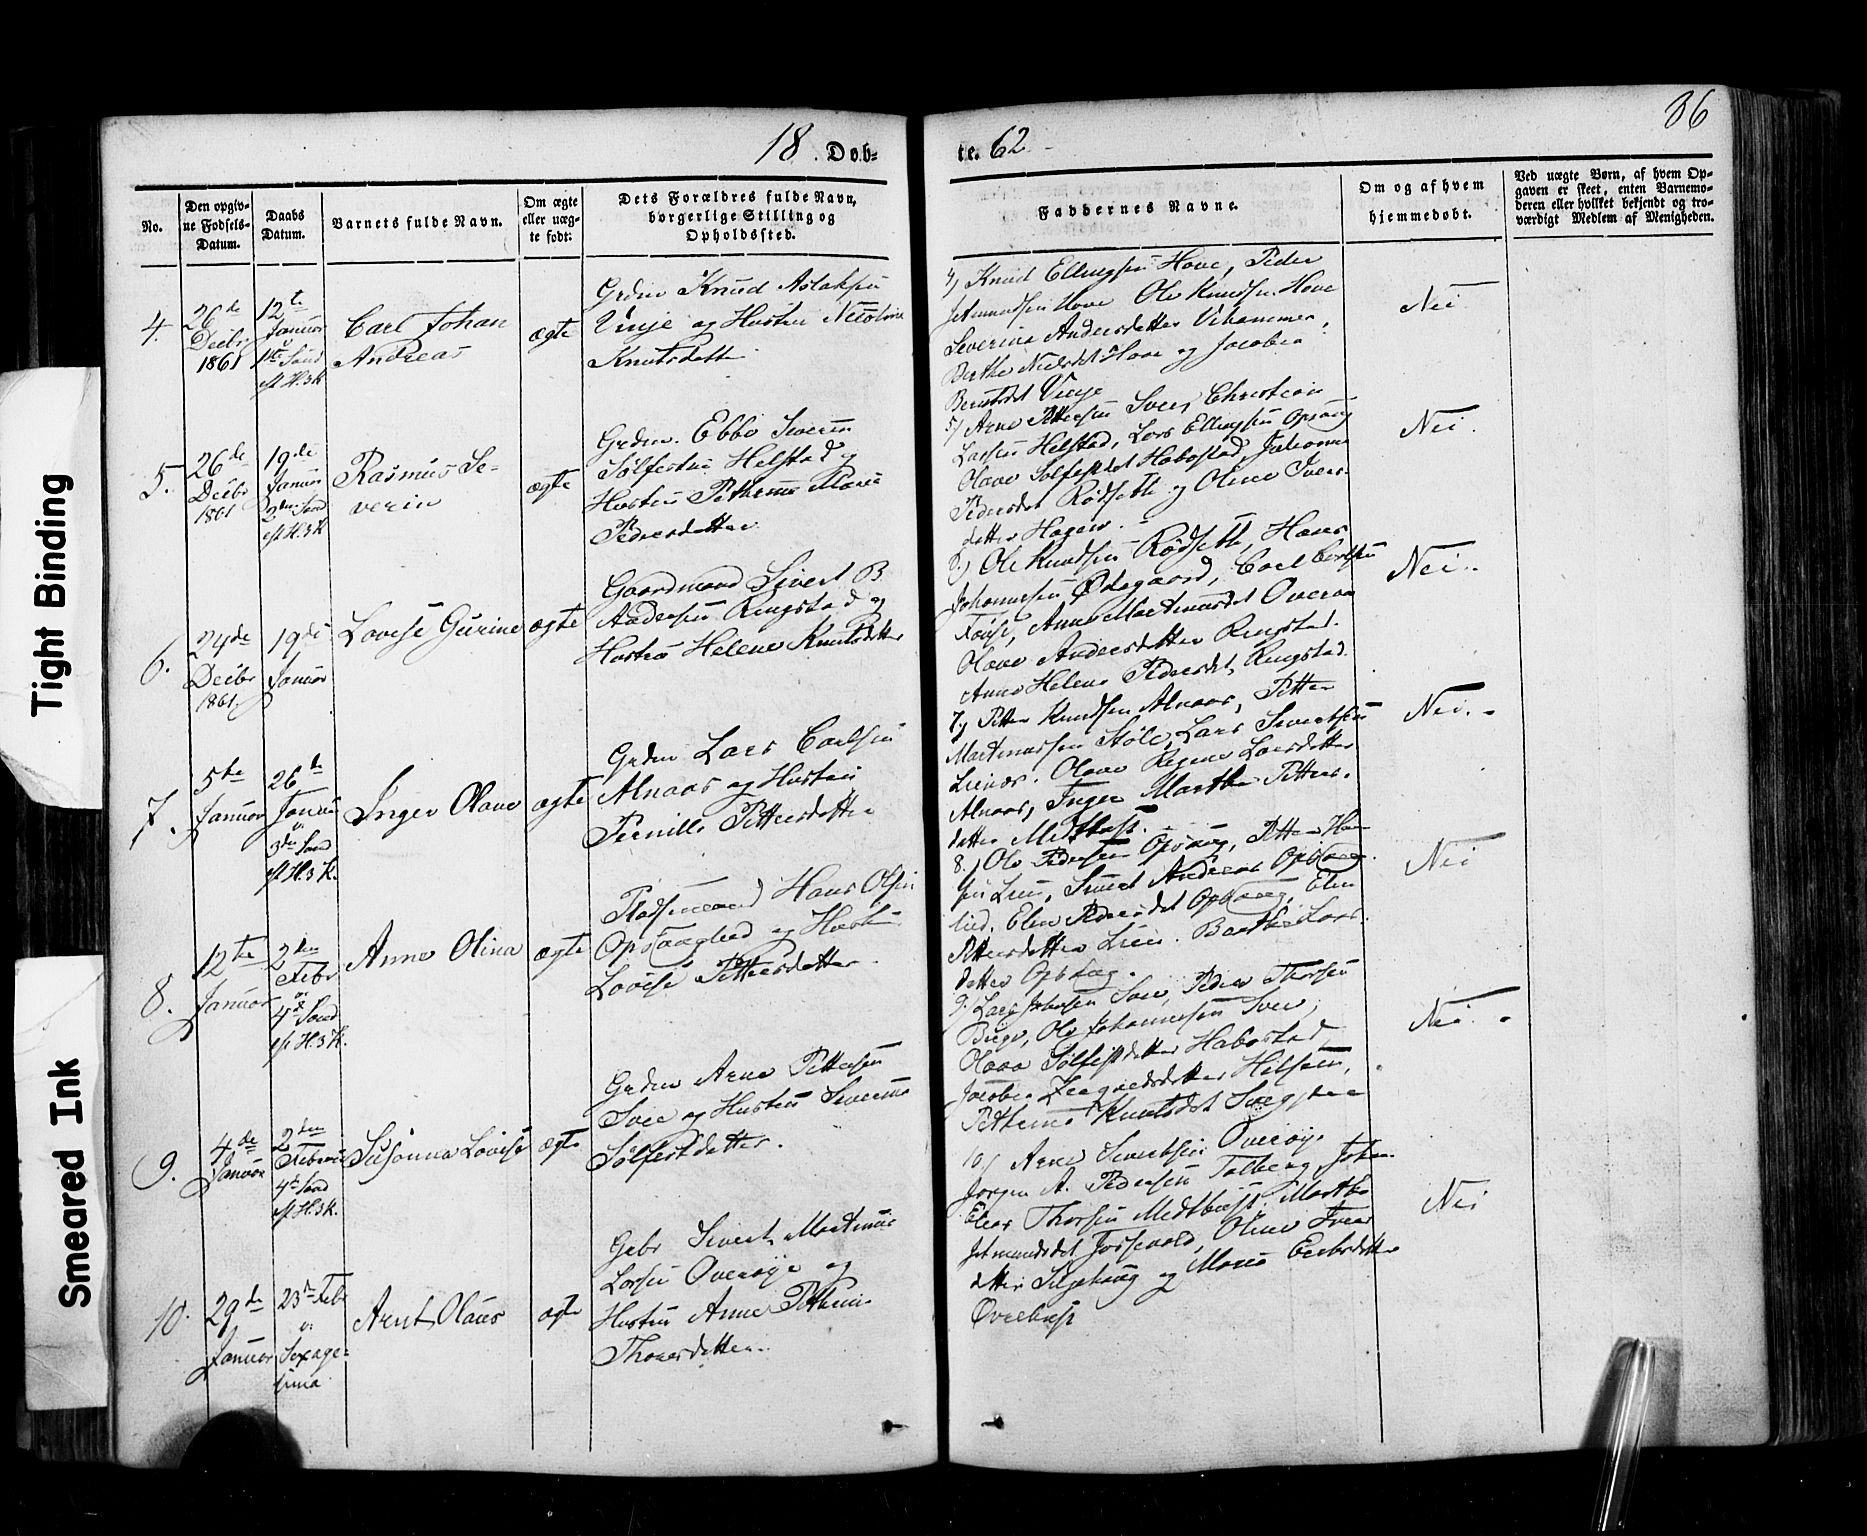 86
18 . Dob-
te. 62
No.
Den opgiv-
ne Fødsels-
Datum.
Daabs
Datum.
Barnets fulde Navn.
Om ægte
eller uæg-
te født:
Dets Forældres fulde Navn,
borgerlige Stilling og
Opholdssted.
Faddernes Navne.
Om og af hvem
hjemmedøbt.
Ved uægte Børn, af hvem Op-
gaven er skeet, enten Barnemo-
deren eller hvilket bekjendt og tro-
værdigt Medlem af Menigheden.
4.
26de
Decbr
1861
12te
Januar
1ste Sønd
ef H.3K
Carl Johan
Andreas
ægte
Grdm Knud Aslaksen
Vinje og Hustru
Knutsdetter
4) Knud Ellingsen Hove, Peder
Hove Ole Knudsen Hove
Severina Andersdetter
Berthe Hove og Jacobea
Vinje
Nei
5.
26de
Decbr
1861
19de
Januar
2den Sønd
ef H.3K
Rasmus Se-
verin
ægte
Grdm. Ebbe Severin
Sølfestsen Helstad og
Hustru Petrine Marie
Pedersdetter
5) Arne Pettersen Sver, Christian
Larsen Helstad, Lars Ellingsen Opsaug
Olave Sølfestdet Habostad, Julianna
Pedersdet Rødseth og Oline Ivers-
detter Hagen.
Nei.
6.
24de
Decbr
1861
19de
Januar
Lovise Gurine
ægte
Gaardmand Sivert B
Andersen Ringstad og
Hustru Helene Knutsdetter
6.) Ole Knudsen Rødseth, Hans
Johannesen Ødegaard, Carl Carlsen
Anne Martinusdet Overaa
Olave Andersdetter Ringstad.
Anne Helene Pedersdet, Ringstad.
Nei.
7.
5te
Januar
26de
Januar
3die Sønd
ef H.3K.
Inger Olave
ægte
Grdm Lars Carlsen
Alnaas og Hustru
Pernille Pettersdetter
7.) Petter Knudsen Alnaas, Petter
Martinussen Støle, Lars Sivertsen
Olave Regine Larsdetter
Alnaas, Inger Marthe Petters-
detter Midtbust.
Nei. -
8.
12te
Januar
2den
Febr
4de Sønd
ef H.3K.
Anne Olina
ægte
Pladsmand Hans Olsen
Opsauglied og Hustru
Lovise Pettersdetter.
8.) Ole Pedersen Opsaug, Petter Han-
sen Lien, Sivert Andreas Opsaug-
lied. Elen Pedersdet Opsaug, Elen
Pettersdetter Lien. Barthe Lars-
detter Opsaug.
Nei
9.
4de
Januar
2den
Februar
4de Sønd
ef H.3K.
Susanna Lovise
ægte
Grdm Arne Pettersen
Sver og Hustru Severine
Sølfestdetter.
9.) Lars Johnsen Sver, Peder Thorsen
Ole Johannesen Sver,
Olave Sølfestdetter Habostad,
Jacobea
Petrine Knutsdet
Nei. -
10.
29de
Januar
23de Feb
Sexage-
sima
Arnt Olaus
ægte
Gbr Sivert Martinus
Larsen Overøye og
Hustru Anne Petrine
Thoresdetter.
10) Arne Sivertsen Overøye
Jørgen A. Pedersen Talberg, Johan
Elias Thorsen Midtbust, Marthe
Oline Iver-
detter og Marie
Øvrebust
Nei
Tight Binding
Smeared Ink